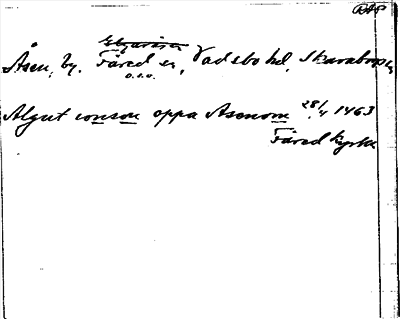 RAP
Åsen, by. Färed sn, Vadsbo hd, Skaraborgs
o.s.v.
Algut ionson oppa Asenom 28/4 1463
Färed kyrka